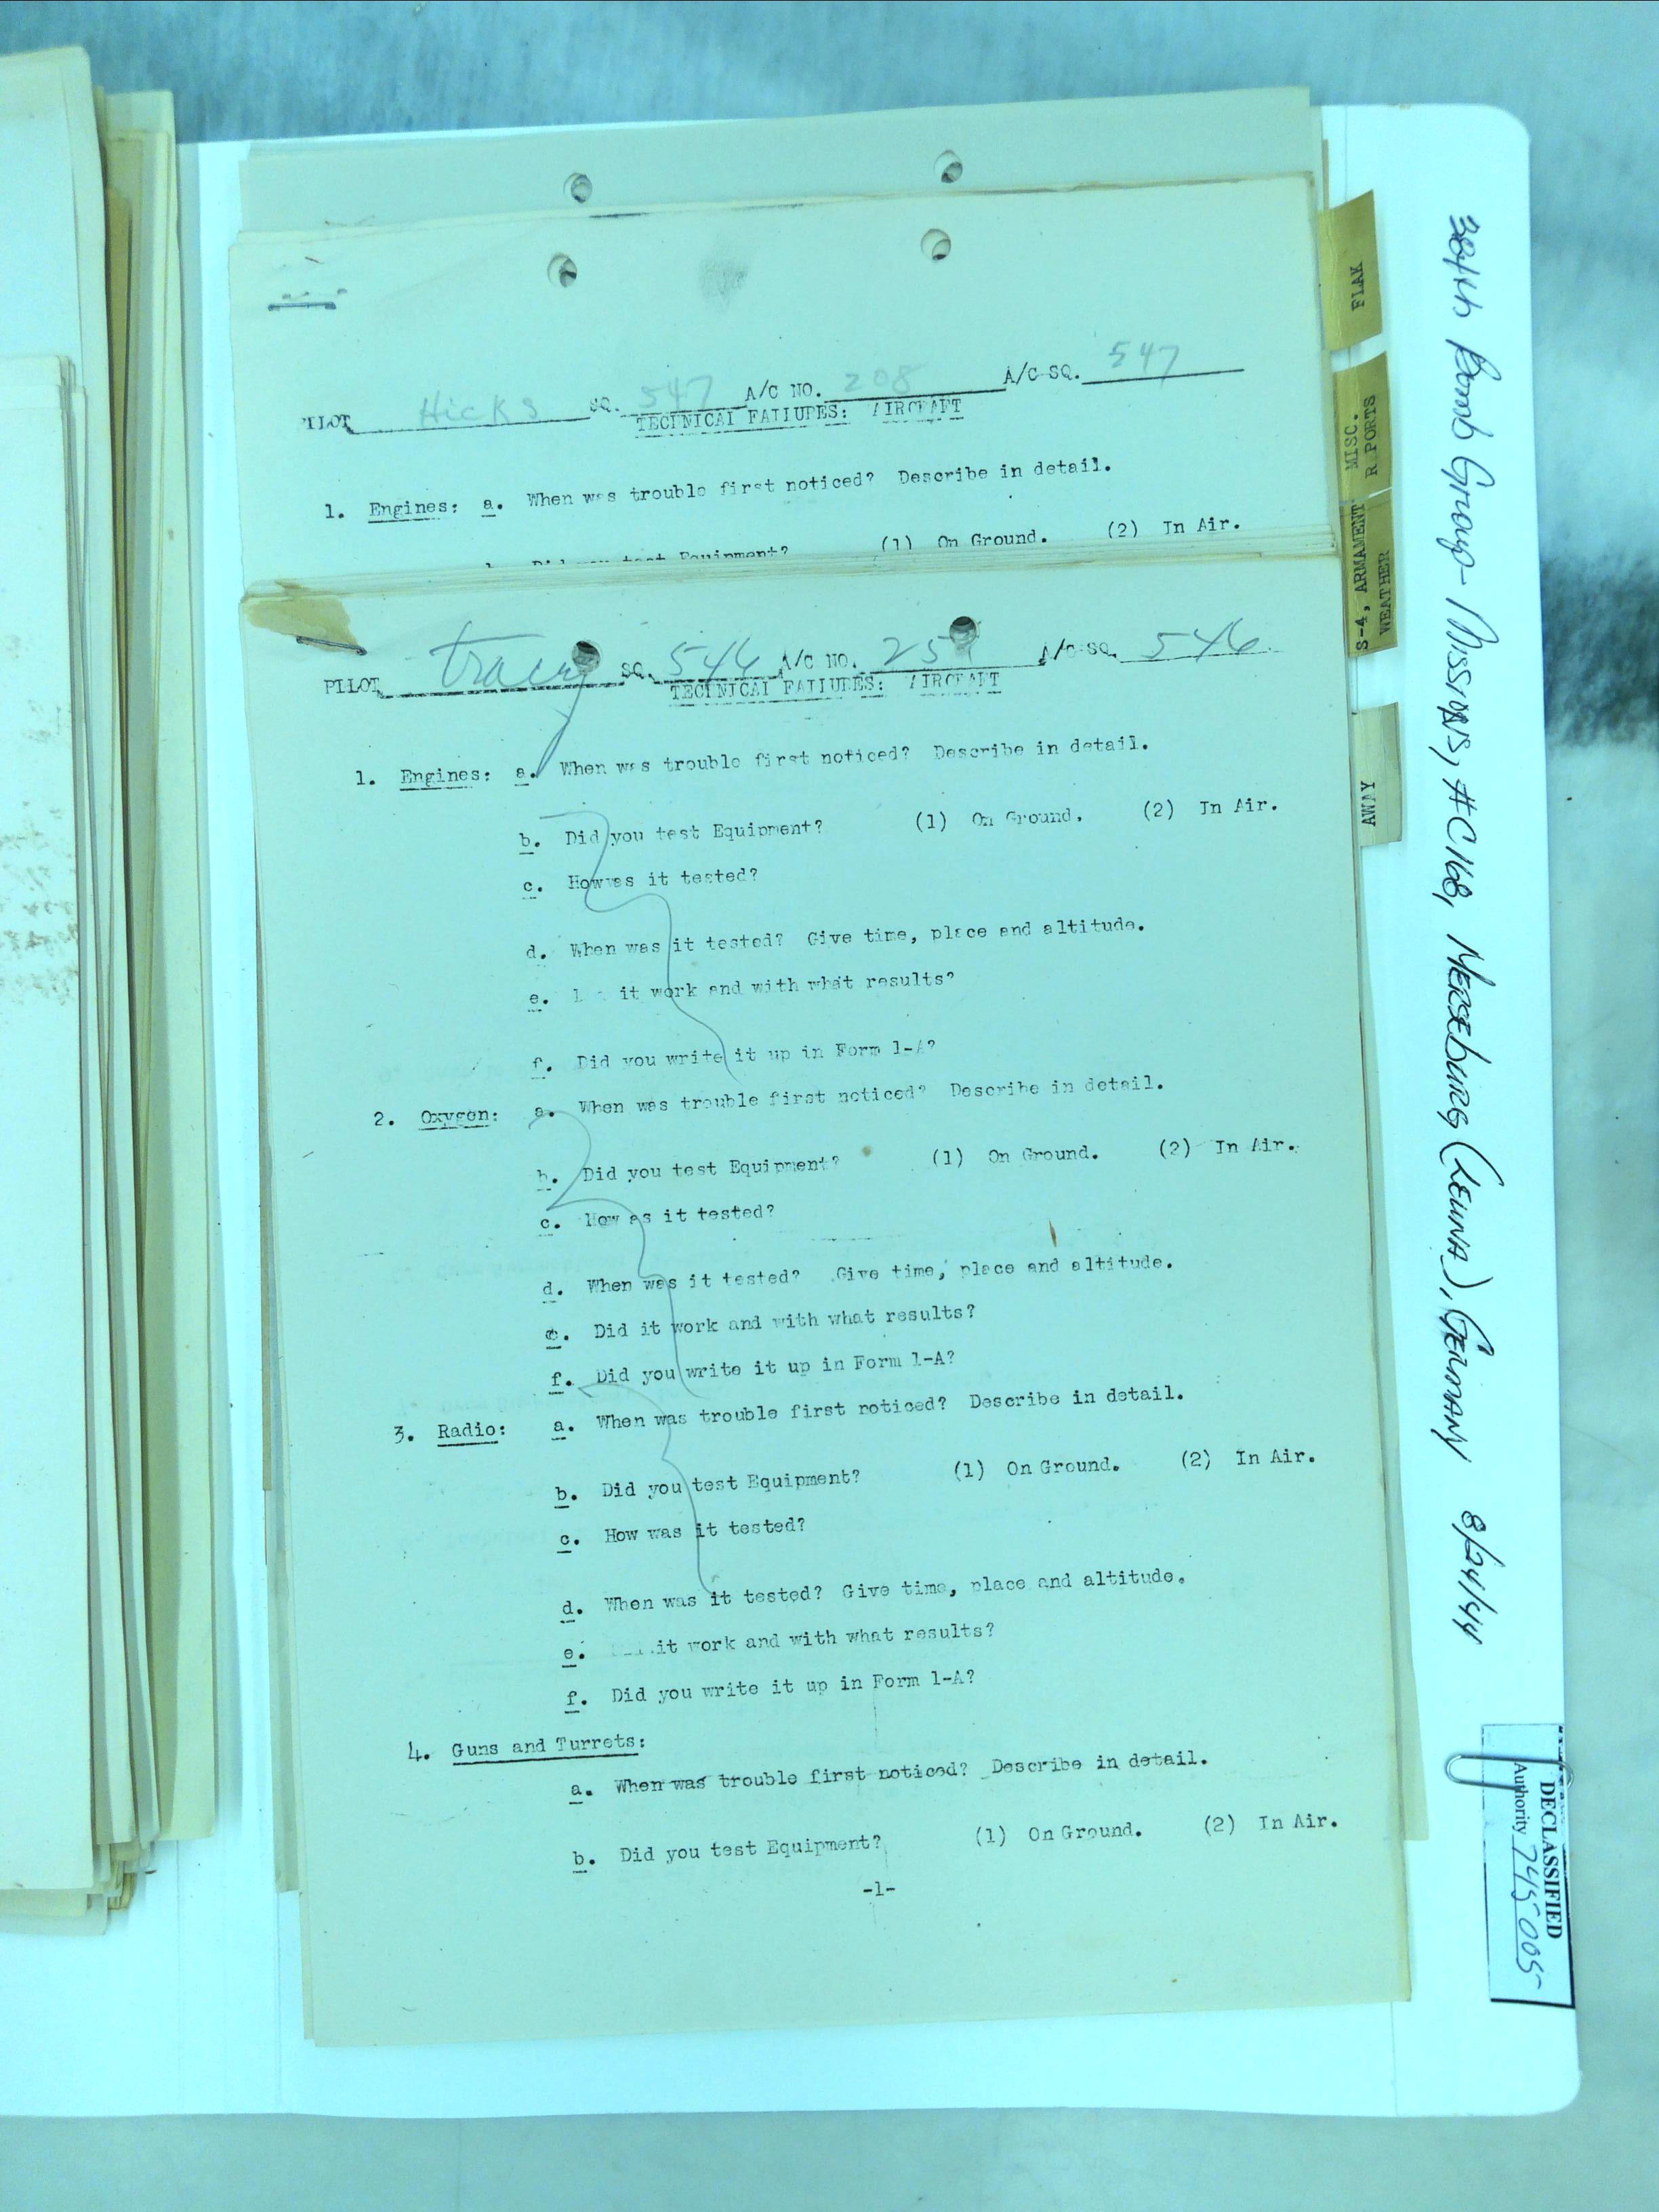 PILOT Hicks SQ. 547 A/C NO. 208 A/C SQ. 547
TECHNICAL FAILURES: AIRCRAFT
1. Engines: a. When was trouble first noticed? Describe in detail.
Did you test Equipment? (1) On Ground. (2) In Air.
PILOT Tracy SQ. 546 A/C NO. A/C SQ. 546
TECHNICAL FAILURES: AIRCRAFT
1. Engines: a. When was trouble first noticed? Describe in detail.
b. Did you test Equipment? (1) On Ground. (2) In Air.
c. How was it tested?
d. When was it tested? Give time, place and altitude.
e. it work and with what results?
f. Did you write it up in Form 1-A?
2. Oxygen: a. When was trouble first noticed? Describe in detail.
b. Did you test Equipment? (1) On Ground. (2) In Air.
c. How as it tested?
d. When was it tested? Give time, place and altitude.
e. Did it work and with what results?
f. Did you write it up in Form 1-A?
3. Radio: a. When was trouble first noticed? Describe in detail.
b. Did you test Equipment? (1) On Ground. (2) In Air.
c. How was it tested?
d. When was it tested? Give time, place and altitude.
e. it work and with what results?
f. Did you write it up in Form 1-A?
4. Guns and Turrets:
a. When was trouble first noticed? Describe in detail.
b. Did you test Equipment? (1) On Ground. (2) In Air.
-1-
FLAK
MISC.
R PORTS
S-4, ARMAMENT
WEATHER
AWAY
384th Bomb Group - Missions, #C168, Merseburg (Leuna), Germany 8/24/44
DECLASSIFIED
Authority 745005